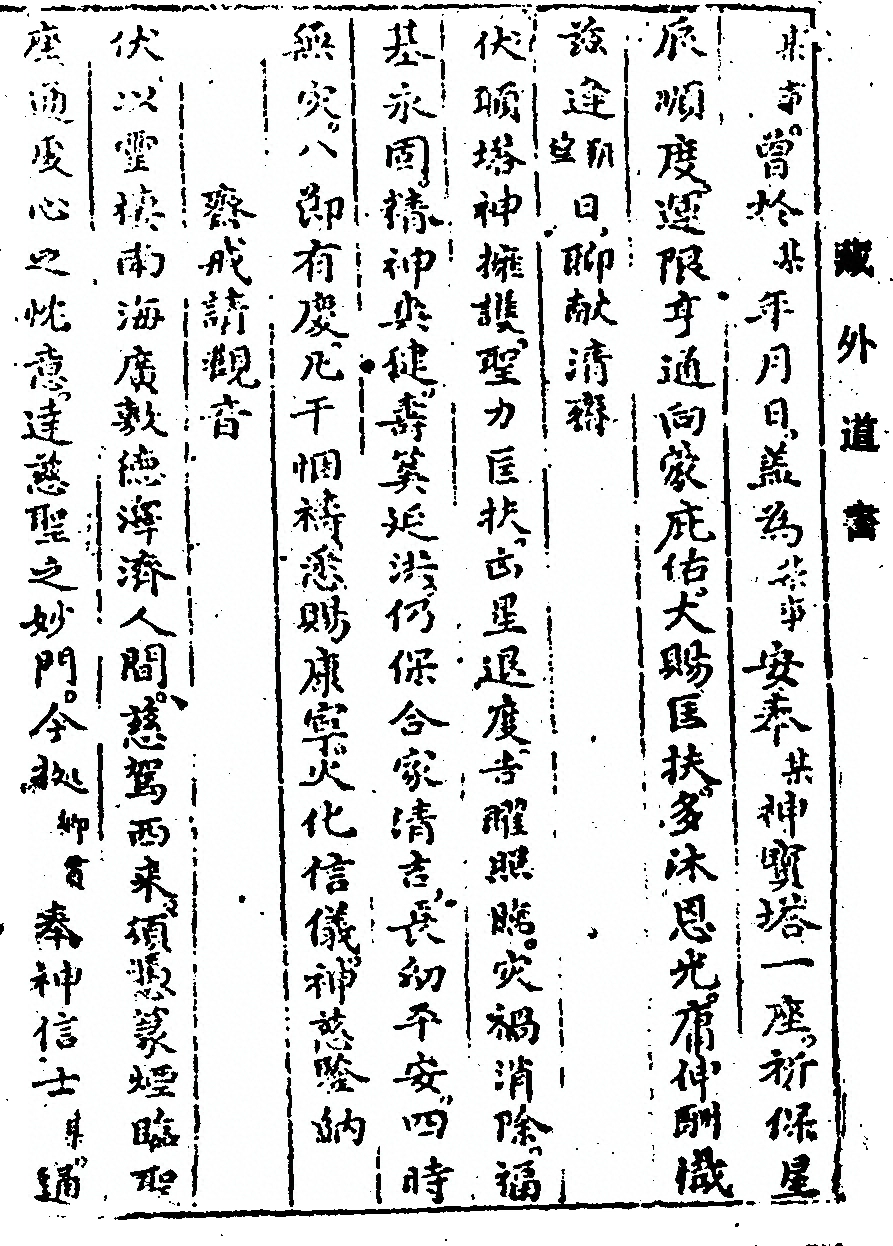 藏外道書
某事。曾於某年月日,蓋為某事安奉某神寶塔一座,祈保星
辰順度,運限亨通,向蒙庇佑。大賜匡扶,多沐恩光。庸伸酬懺
茲逢朔望日,聊献清齋
伏願塔神擁護,聖力匡扶,凶星退度,吉曜照臨。灾禍消除,福
基永固,精神爽健,壽筭延洪,仍保合家清吉,長幼平安,四時
無灾,八節有慶,凡干悃禱,悉賜康寧,火化信儀,神慈鑒納
齋戒請觀音
伏以靈棲南海,廣敷德澤濟人間。慈駕西来,須憑篆煙臨聖
座,通虔心之忱意,達慈聖之妙門。今啟鄉貫奉神信士某,通